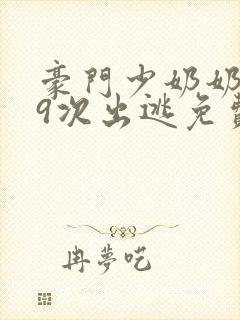 豪門少奶奶
9次出逃免費
冉夢呓